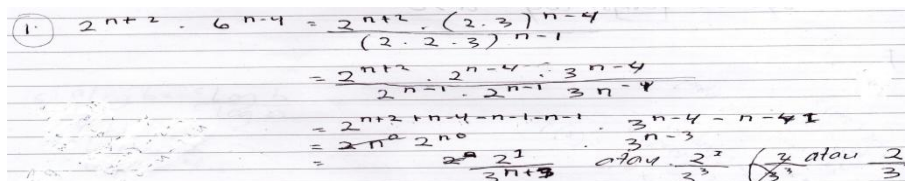 1. 2^{n+2} . 6^{n-4} = \frac{2^{n+2} . (2.3)^{n-4}}{(2.2.3)^{n-1}}
= \frac{2^{n+2} . 2^{n-4} . 3^{n-4}}{2^{n-1} . 2^{n-1} 3^{n-4}}
= 2^{n+2+n-4-n-1-n-1} . 3^{n-4-n-1}
= 2^{n0} . 3^{n-3}
= \frac{2^1}{3^{n+3}} atau \frac{2^2}{3^3} atau \frac{2}{3}